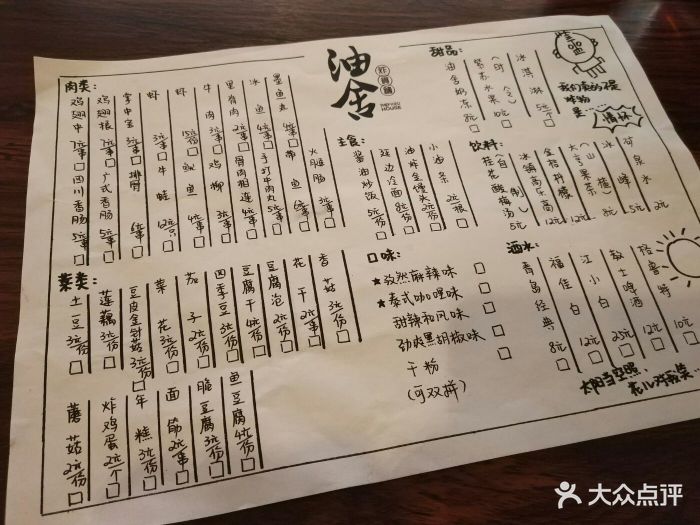 油舍
炸得鲜
THEYOU
HOUSE
肉类:
鸡翅中
鸡翅根
掌中宝
虾
牛肉
里脊肉
冰鱼
墨鱼丸
四川香肠 5元/串
广式香肠 5元/串
排骨
牛蛙 12元/只
鱿鱼
鸡柳
骨肉相连
手打牛肉丸
带鱼
火腿肠
菜类:
土豆 3元/份
莲藕 3元/份
豆皮金针菇 3元/份
菜花 3元/份
茄子 2元/份
四季豆 3元/份
豆腐干 4元/份
豆腐泡 2元/份
花干 2元/串
香菇 3元/份
蘑菇 2元/份
炸鸡蛋 2元/个
年糕 3元/份
面筋 2元/串
脆豆腐 3元/份
鱼豆腐 4元/份
主食:
酱油炒饭 5元/份
延边冷面 8元/份
油炸金馒头 2元/份
小油条 2元/根
口味:
★孜然麻辣味
★泰式咖喱味
甜辣和风味
劲爽黑胡椒味
干粉
(可双拼)
甜品:
油舍奶冻 8元
紫苏水果(时令) 10元
冰淇淋 5元/个
饮料:
桂花酸梅汤(自制) 5元
冰镇高乐高 12元
金桔柠檬 12元
大红果茶(山楂) 8元
冰峰 5元
矿泉水 2元
酒水:
青岛经典 8元
福佳白 12元
江小白 25元
教士啤酒 12元
格鲁特 10元
我们卖的不是
炸物
是...
情怀
大众点评